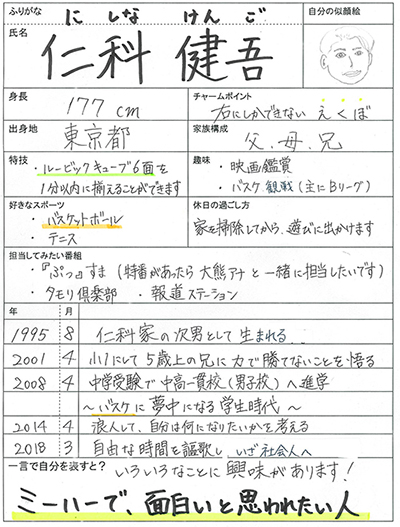 ふりがな にしな けんご
自分の似顔絵
氏名
仁科 健吾
身長
177cm
チャームポイント
右にしかできない えくぼ
出身地
東京都
家族構成
父、母、兄
特技
・ルービックキューブ6面を
1分以内に揃えることができます
趣味
・映画鑑賞
・バスケ観戦(主にBリーグ)
好きなスポーツ
・バスケットボール
・テニス
休日の過ごし方
家を掃除してから、遊びに出かけます
担当してみたい番組
・『ぷっ』すま(特番があったら大熊アナと一緒に担当したいです)
・タモリ倶楽部 ・報道ステーション
年 月
1995 8 仁科家の次男として生まれる
2001 4 小1にして5歳上の兄に力で勝てないことを悟る
2008 4 中学受験で中高一貫校(男子校)へ進学
〜バスケに夢中になる学生時代〜
2014 4 浪人して、自分は何になりたいかを考える
2018 3 自由な時間を謳歌し、いざ社会人へ
一言で自分を表すと?
いろいろなことに興味があります!
ミーハーで、面白いと思われたい人